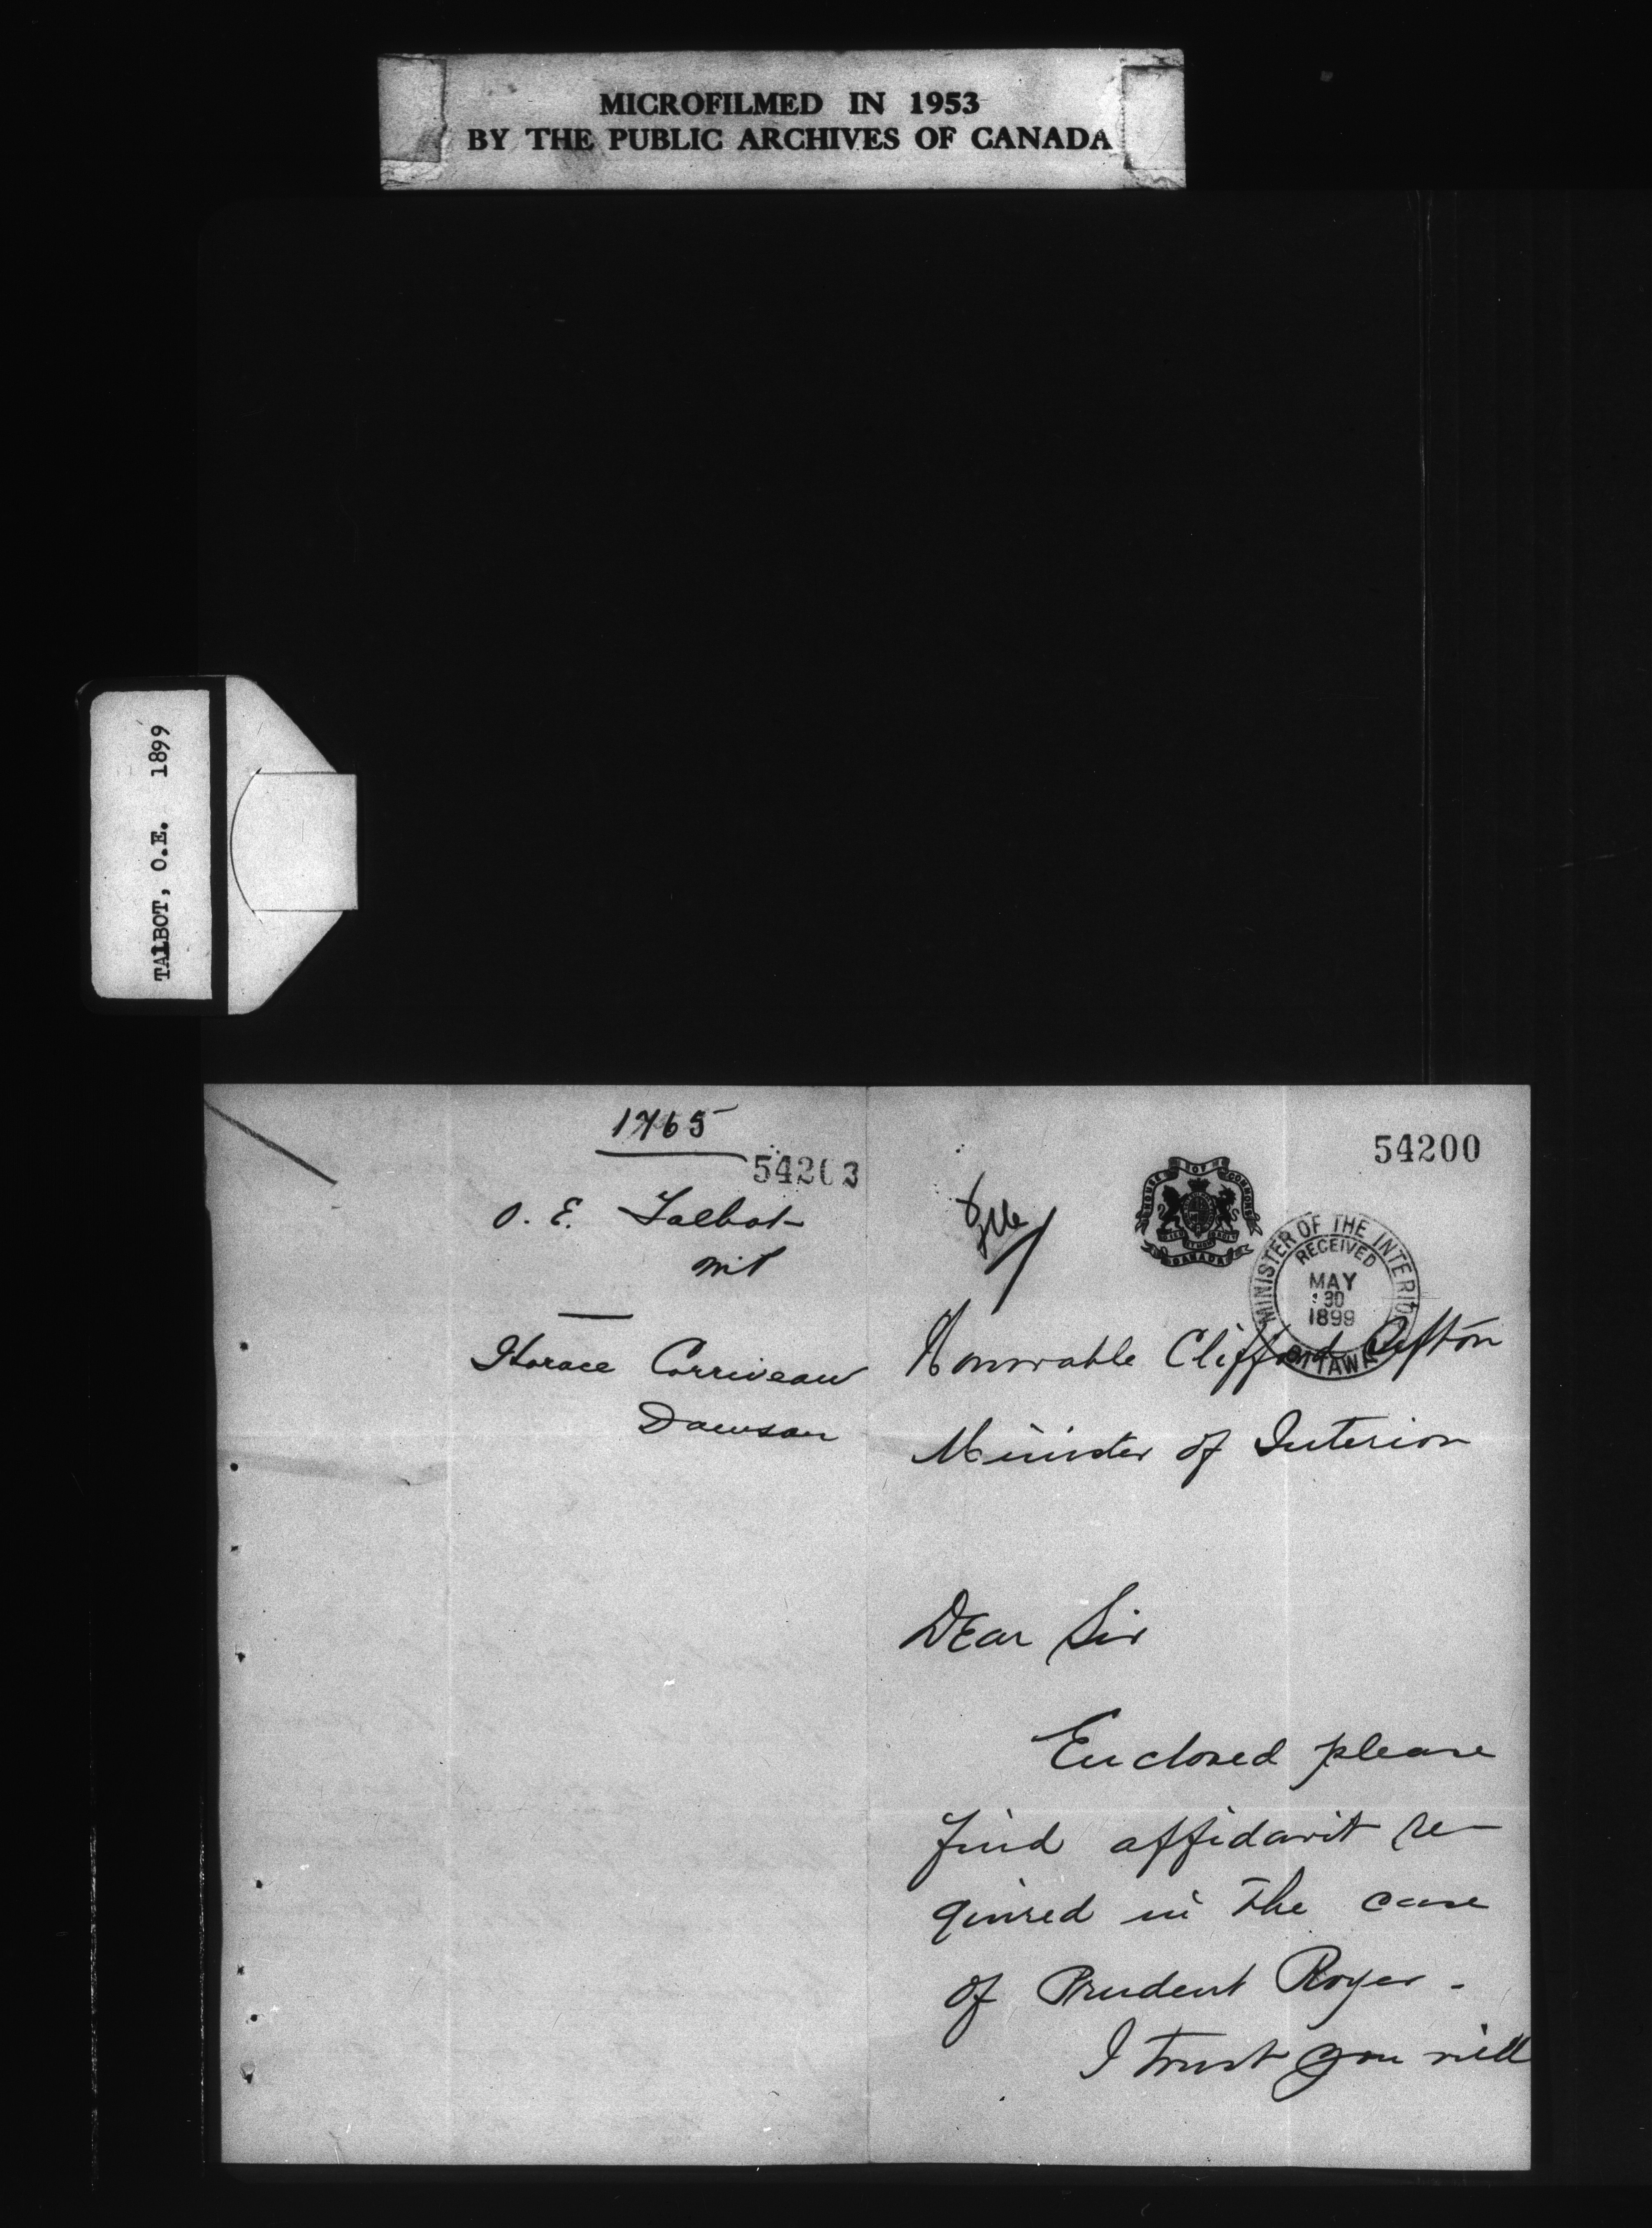 MICROFILMED IN 1953
BY THE PUBLIC ARCHIVES OF CANADA
TALBOT, O.E. 1899
1765
54203
O. E. Talbot
MP
Horace Corriveau
Dawson
54200
file
HOUSE OF COMMONS
CANADA
MINISTER OF THE INTERIOR
RECEIVED
MAY
30
1899
OTTAWA
Honorable Clifford Sifton
Minister of Interior
DEar Sir
Enclosed please
find affidavit re-
quired in the case
of Prudent Royer -
I trust you will